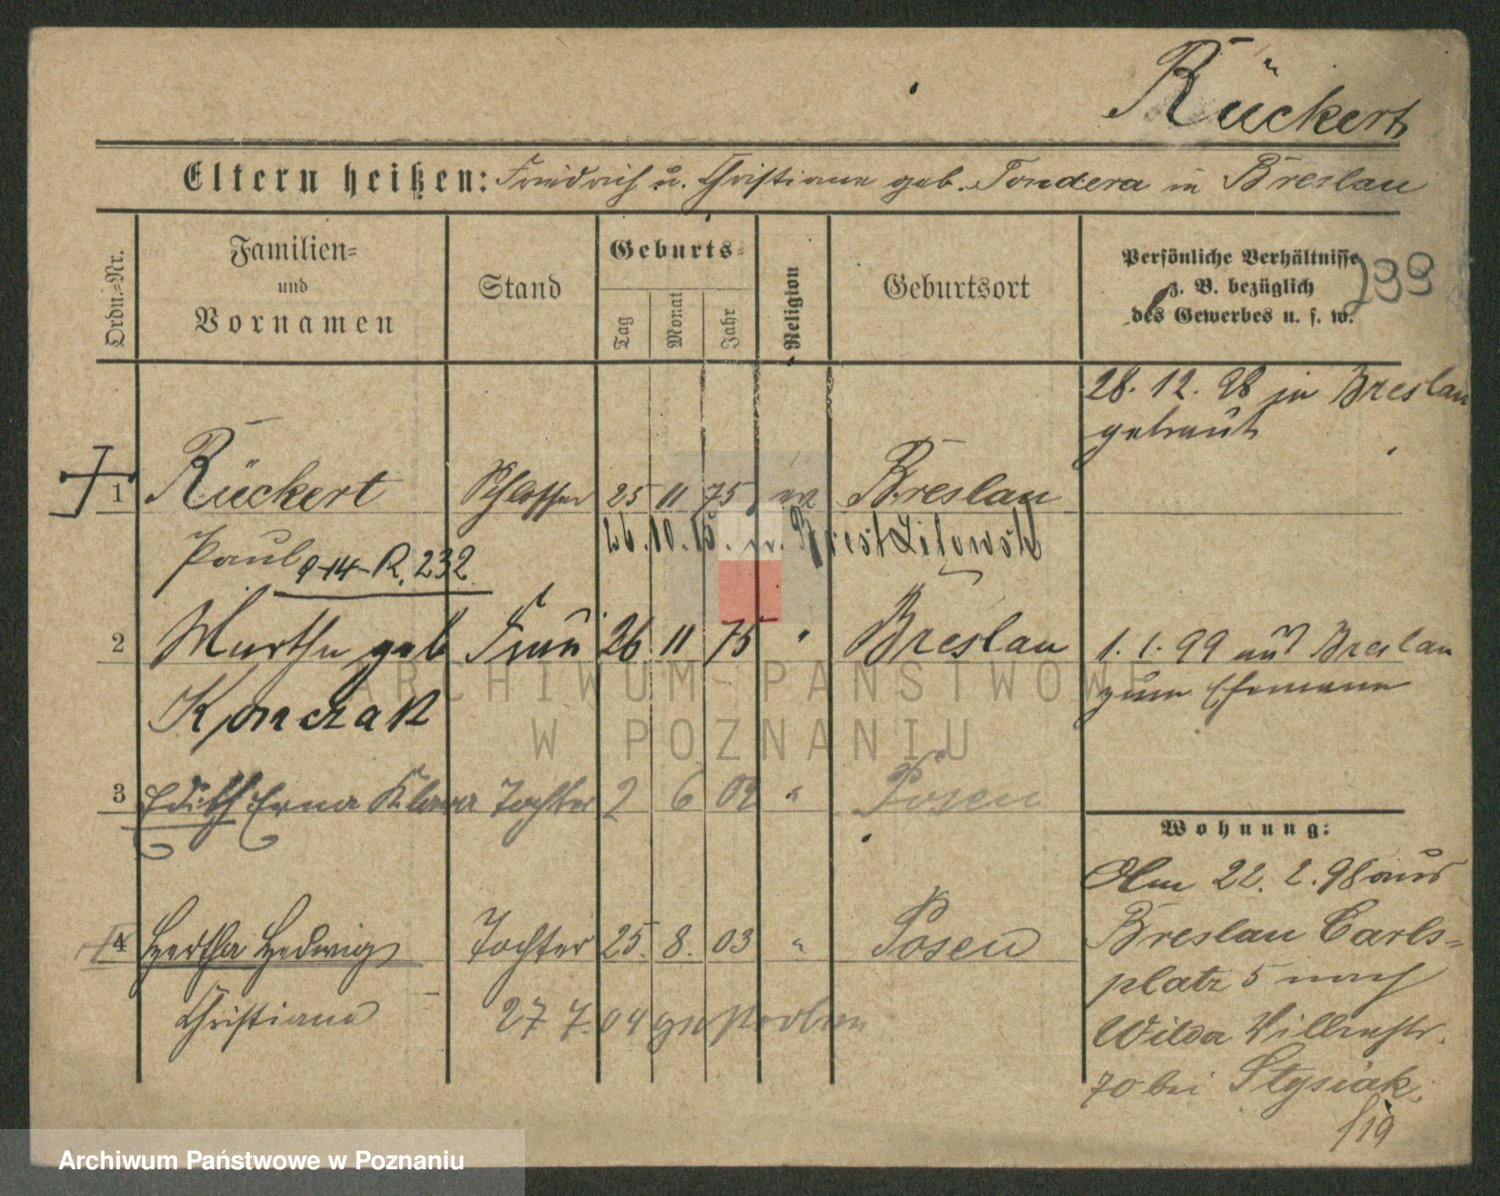 Rückert
Eltern heißen: Friedrich u. Christiane geb. Tondera in Breslau
Ordn.-Nr.
Familien- und Vornamen
Stand
Geburts-
Tag
Monat
Jahr
Religion
Geburtsort
Persönliche Verhältnisse
z. B. bezüglich
des Gewerbes u. s. w.
28. 12. 98 in Breslau
getraut
1 Rückert Schlosser 25 11 75 ev Breslau
Paul 9-14-R. 232
26.10.15. in Brest Litowsk
2 Martha geb Frau 26 11 75 " Breslau
Konczak
1. 1. 99 aus Breslau
zum Ehemann
3 Edith Erna Klara Tochter 2 6 02 " Posen
4 Hertha Hedwig Tochter 25. 8. 03 " Posen
Christiane 27 7. 04 gestorben
Wohnung:
Am 22. 2. 98 aus
Breslau Carls-
platz 5 nach
Wilda Villenstr.
70 bei Stysiak.
ARCHIWUM PAŃSTWOWE
W POZNANIU
Archiwum Państwowe w Poznaniu